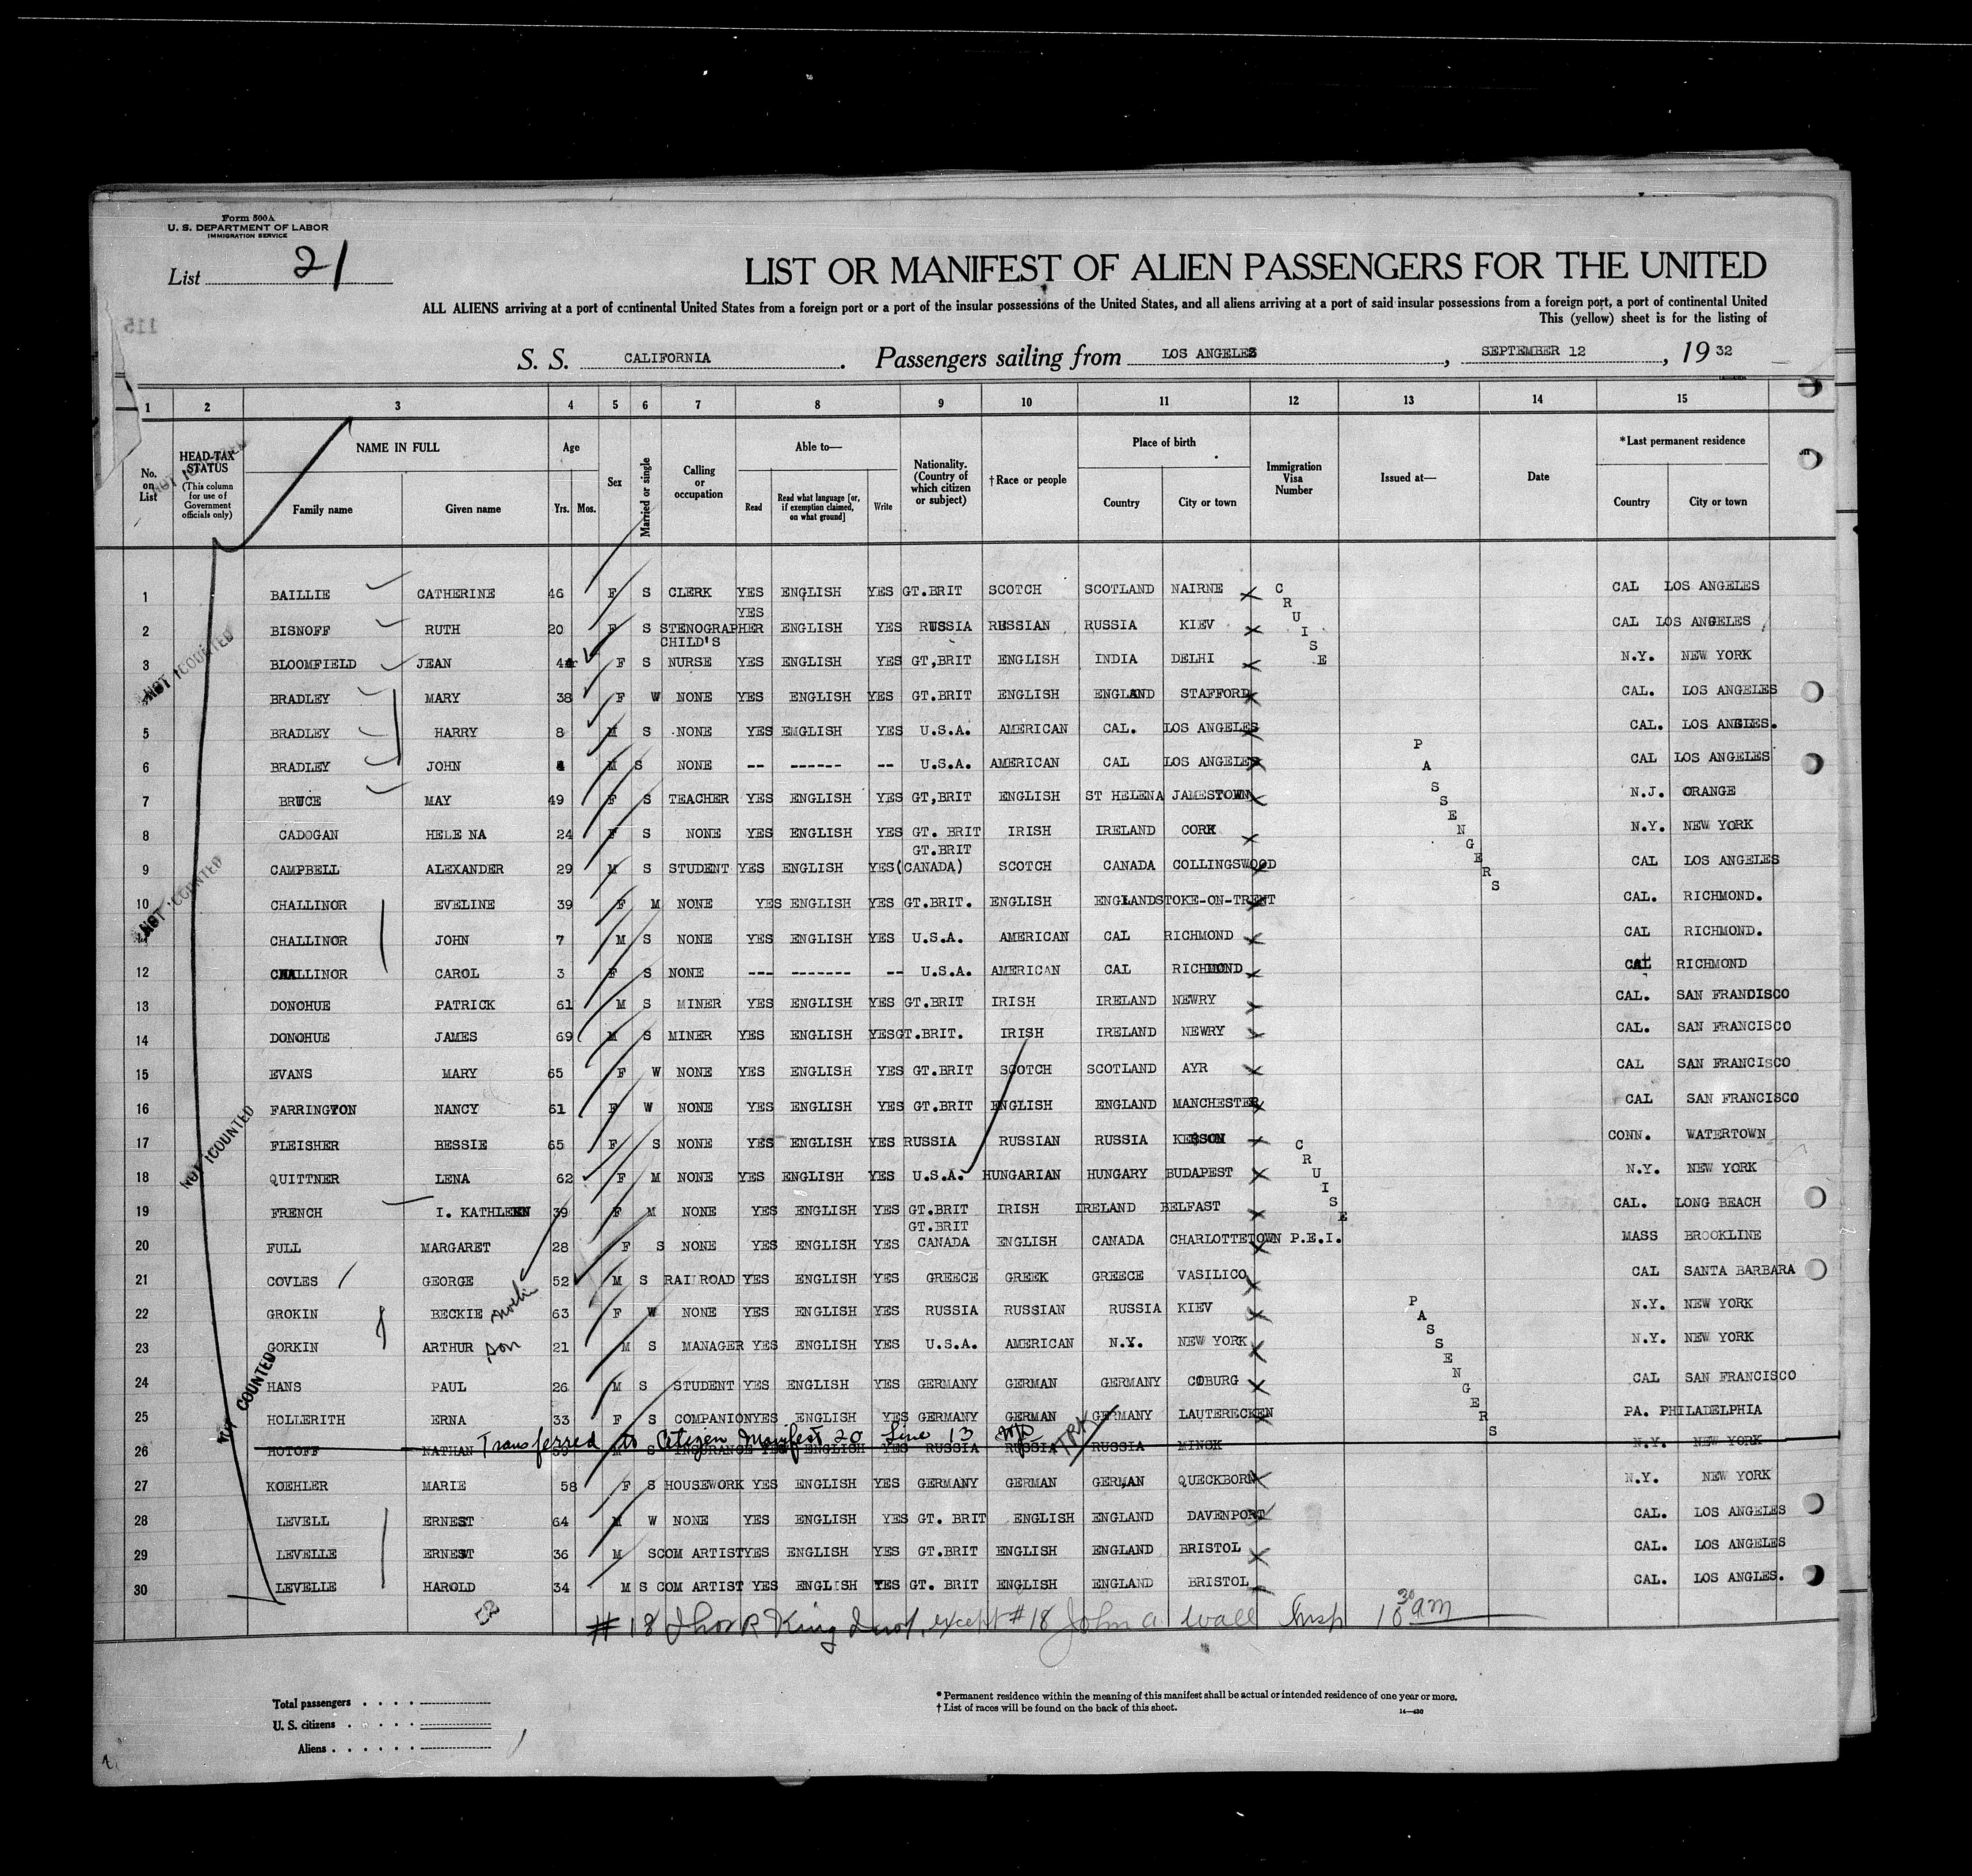 Form 500A
U. S. DEPARTMENT OF LABOR
IMMIGRATION SERVICE
List 21
LIST OR MANIFEST OF ALIEN PASSENGERS FOR THE UNITED
ALL ALIENS arriving at a port of continental United States from a foreign port or a port of the insular possessions of the United States, and all aliens arriving at a port of said insular possessions from a foreign port, a port of continental United
This (yellow) sheet is for the listing of
115
S. S. CALIFORNIA. Passengers sailing from LOS ANGELES, SEPTEMBER 12, 1932
1 2 3 4 5 6 7 8 9 10 11 12 13 14 15
No. on List
HEAD-TAX STATUS (This column for use of Government officials only)
NAME IN FULL Family name Given name
Age Yrs. Mos.
Sex
Married or single
Calling or occupation
Able to— Read Read what language [or, if exemption claimed, on what ground] Write
Nationality. (Country of which citizen or subject)
†Race or people
Place of birth Country City or town
Immigration Visa Number
Issued at—
Date
*Last permanent residence Country City or town
1 BAILLIE CATHERINE 46 F S CLERK YES ENGLISH YES GT.BRIT SCOTCH SCOTLAND NAIRNE CAL LOS ANGELES
2 BISNOFF RUTH 20 F S STENOGRAPHER YES ENGLISH YES RUSSIA RUSSIAN RUSSIA KIEV CAL LOS ANGELES
3 BLOOMFIELD JEAN F S CHILD'S NURSE YES ENGLISH YES GT,BRIT ENGLISH INDIA DELHI N.Y. NEW YORK
4 BRADLEY MARY 38 F W NONE YES ENGLISH YES GT.BRIT ENGLISH ENGLAND STAFFORD CAL. LOS ANGELES
5 BRADLEY HARRY 8 M S NONE YES ENGLISH YES U.S.A. AMERICAN CAL. LOS ANGELES CAL. LOS ANGLES.
6 BRADLEY JOHN 4 M S NONE -- ------ -- U.S.A. AMERICAN CAL LOS ANGELES CAL LOS ANGELES
7 BRUCE MAY 49 F S TEACHER YES ENGLISH YES GT,BRIT ENGLISH ST HELENA JAMESTOWN N.J. ORANGE
8 CADOGAN HELE NA 24 F S NONE YES ENGLISH YES GT. BRIT IRISH IRELAND CORK N.Y. NEW YORK
9 CAMPBELL ALEXANDER 29 M S STUDENT YES ENGLISH YES GT.BRIT (CANADA) SCOTCH CANADA COLLINGSWOOD CAL LOS ANGELES
10 CHALLINOR EVELINE 39 F M NONE YES ENGLISH YES GT.BRIT. ENGLISH ENGLAND STOKE-ON-TRENT CAL. RICHMOND.
11 CHALLINOR JOHN 7 M S NONE YES ENGLISH YES U.S.A. AMERICAN CAL RICHMOND CAL RICHMOND.
12 CHALLINOR CAROL 3 F S NONE --- ------- -- U.S.A. AMERICAN CAL RICHMOND CAL RICHMOND
13 DONOHUE PATRICK 61 M S MINER YES ENGLISH YES GT.BRIT IRISH IRELAND NEWRY CAL. SAN FRANCISCO
14 DONOHUE JAMES 69 M S MINER YES ENGLISH YES GT.BRIT. IRISH IRELAND NEWRY CAL. SAN FRANCISCO
15 EVANS MARY 65 F W NONE YES ENGLISH YES GT.BRIT SCOTCH SCOTLAND AYR CAL SAN FRANCISCO
16 FARRINGTON NANCY 61 F W NONE YES ENGLISH YES GT.BRIT ENGLISH ENGLAND MANCHESTER CAL SAN FRANCISCO
17 FLEISHER BESSIE 65 F S NONE YES ENGLISH YES RUSSIA RUSSIAN RUSSIA KERSON CONN. WATERTOWN
18 QUITTNER LENA 62 F M NONE YES ENGLISH YES U.S.A. HUNGARIAN HUNGARY BUDAPEST N.Y. NEW YORK
19 FRENCH I. KATHLEEN 39 F M NONE YES ENGLISH YES GT.BRIT IRISH IRELAND BELFAST CAL. LONG BEACH
20 FULL MARGARET 28 F S NONE YES ENGLISH YES GT.BRIT CANADA ENGLISH CANADA CHARLOTTETOWN P.E.I. MASS BROOKLINE
21 COVLES GEORGE 52 M S RAILROAD YES ENGLISH YES GREECE GREEK GREECE VASILICO CAL SANTA BARBARA
22 GROKIN BECKIE 63 F W NONE YES ENGLISH YES RUSSIA RUSSIAN RUSSIA KIEV N.Y. NEW YORK
23 GORKIN ARTHUR son 21 M S MANAGER YES ENGLISH YES U.S.A. AMERICAN N.Y. NEW YORK N.Y. NEW YORK
24 HANS PAUL 26 M S STUDENT YES ENGLISH YES GERMANY GERMAN GERMANY COBURG CAL SAN FRANCISCO
25 HOLLERITH ERNA 33 F S COMPANION YES ENGLISH YES GERMANY GERMAN GERMANY LAUTERECKEN PA. PHILADELPHIA
Transferred to Citizen Manifest 20 Line 13
26 HOTOFF NATHAN 39 M S INSURANCE YES ENGLISH YES RUSSIA RUSSIA RUSSIA MINSK N.Y. NEW YORK
27 KOEHLER MARIE 58 F S HOUSEWORK YES ENGLISH YES GERMANY GERMAN GERMAN QUECKBORN N.Y. NEW YORK
28 LEVELL ERNEST 64 M W NONE YES ENGLISH YES GT. BRIT ENGLISH ENGLAND DAVENPORT CAL. LOS ANGELES
29 LEVELLE ERNEST 36 M S COM ARTIST YES ENGLISH YES GT.BRIT ENGLISH ENGLAND BRISTOL CAL. LOS ANGELES
30 LEVELLE HAROLD 34 M S COM ARTIST YES ENGLISH YES GT. BRIT ENGLISH ENGLAND BRISTOL CAL. LOS ANGLES.
CRUISE
PASSENGERS
CRUISE
PASSENGERS
NOT COUNTED
NOT COUNTED
NOT COUNTED
NOT COUNTED
NOT COUNTED
# 18 King except #18 John A Wall Insp 10 30 am
Total passengers
U. S. citizens
Aliens
* Permanent residence within the meaning of this manifest shall be actual or intended residence of one year or more.
† List of races will be found on the back of this sheet.
14—430